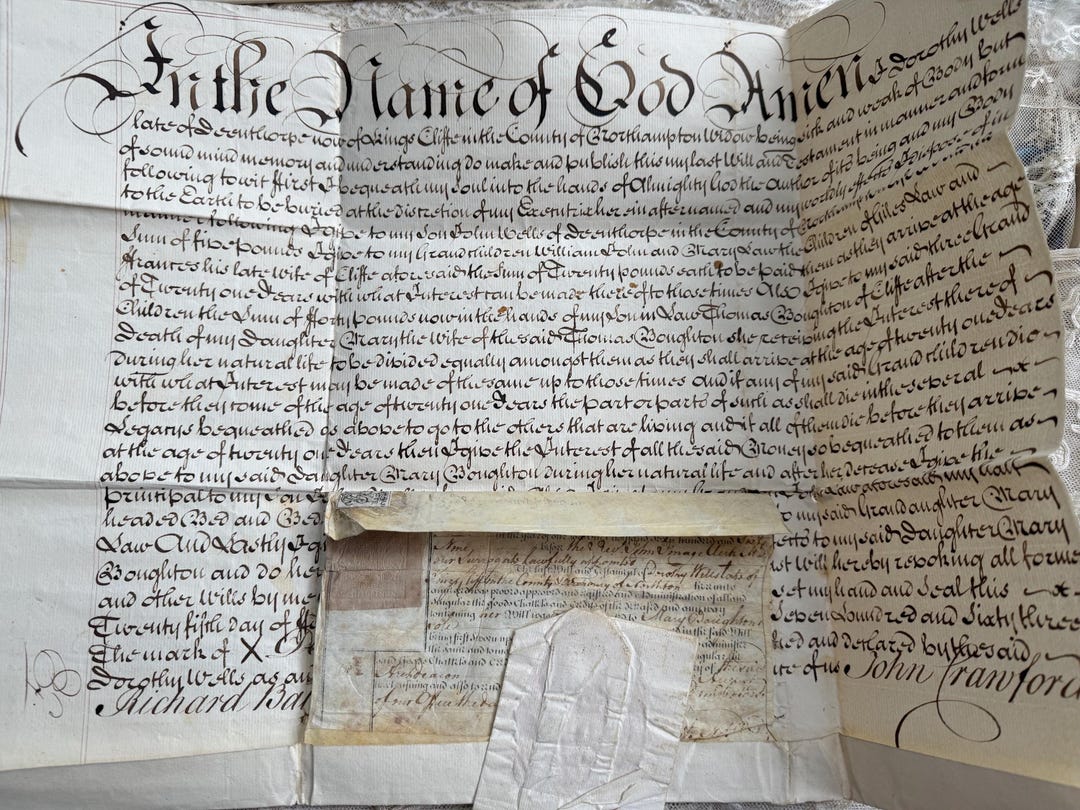 In the Name of God Amen I Dorothy Wells
late of Deenthorpe now of Kings Cliffe in the County of Northampton Widow being sick and weak of Body but
of sound mind memory and understanding do make and publish this my last Will and Testament in manner and form
following to wit ffirst I bequeath my soul into the hands of Almighty God the Author of its being and my Body
to the Earth to be buried at the discretion of my Executrix herein after named and my worldly effects I dispose of in
manner following I give to my Son John Wells of Deenthorpe in the County of
Sum of five pounds I give to my Grandchildren William John and Mary Law the Children of Giles Law and
ffrances his late wife of Cliffe aforesaid the Sum of Twenty pounds each to be paid them as they arrive at the age
of Twenty one Years with what Interest can be made thereof to those times Also I give to my said three Grand
Children the Sum of fforty pounds now in the hands of my Son in Law Thomas Boughton of Cliffe after the
death of my Daughter Mary the wife of the said Thomas Boughton she receiving the Interest thereof
during her natural life to be divided equally amongst them as they shall arrive at the age of twenty one Years
with what Interest may be made of the same up to those times and if any of my said Grand children die
before they come of the age of twenty one Years the part or parts of such as shall die in the several
Legacys bequeathed as above to go to the others that are living and if all of them die before they arrive
at the age of twenty one Years then I give the Interest of all the said Money so bequeathed to them as
above to my said Daughter Mary Boughton during her natural life and after her decease I give the
principal to my
headed Bed and Bed to my said Grandaughter Mary
Law And Lastly I to my said Daughter Mary
Boughton and do her Will hereby revoking all former
and other Wills by me set my hand and Seal this
Twenty fifth day of Seven Hundred and Sixty three
The mark of X and declared by the said
Dorothy Wells as of us John Crawford
Richard
before the
our Surrogate lawfully
Will and Testament of Dorothy Wells late of
in the County
was proved approved and
singular the goods Chattels and Credits of the deceased and any way
concerning her Will Mary Boughton
said Will
being first sworn
Chattels and
Archdeacon
of our Office